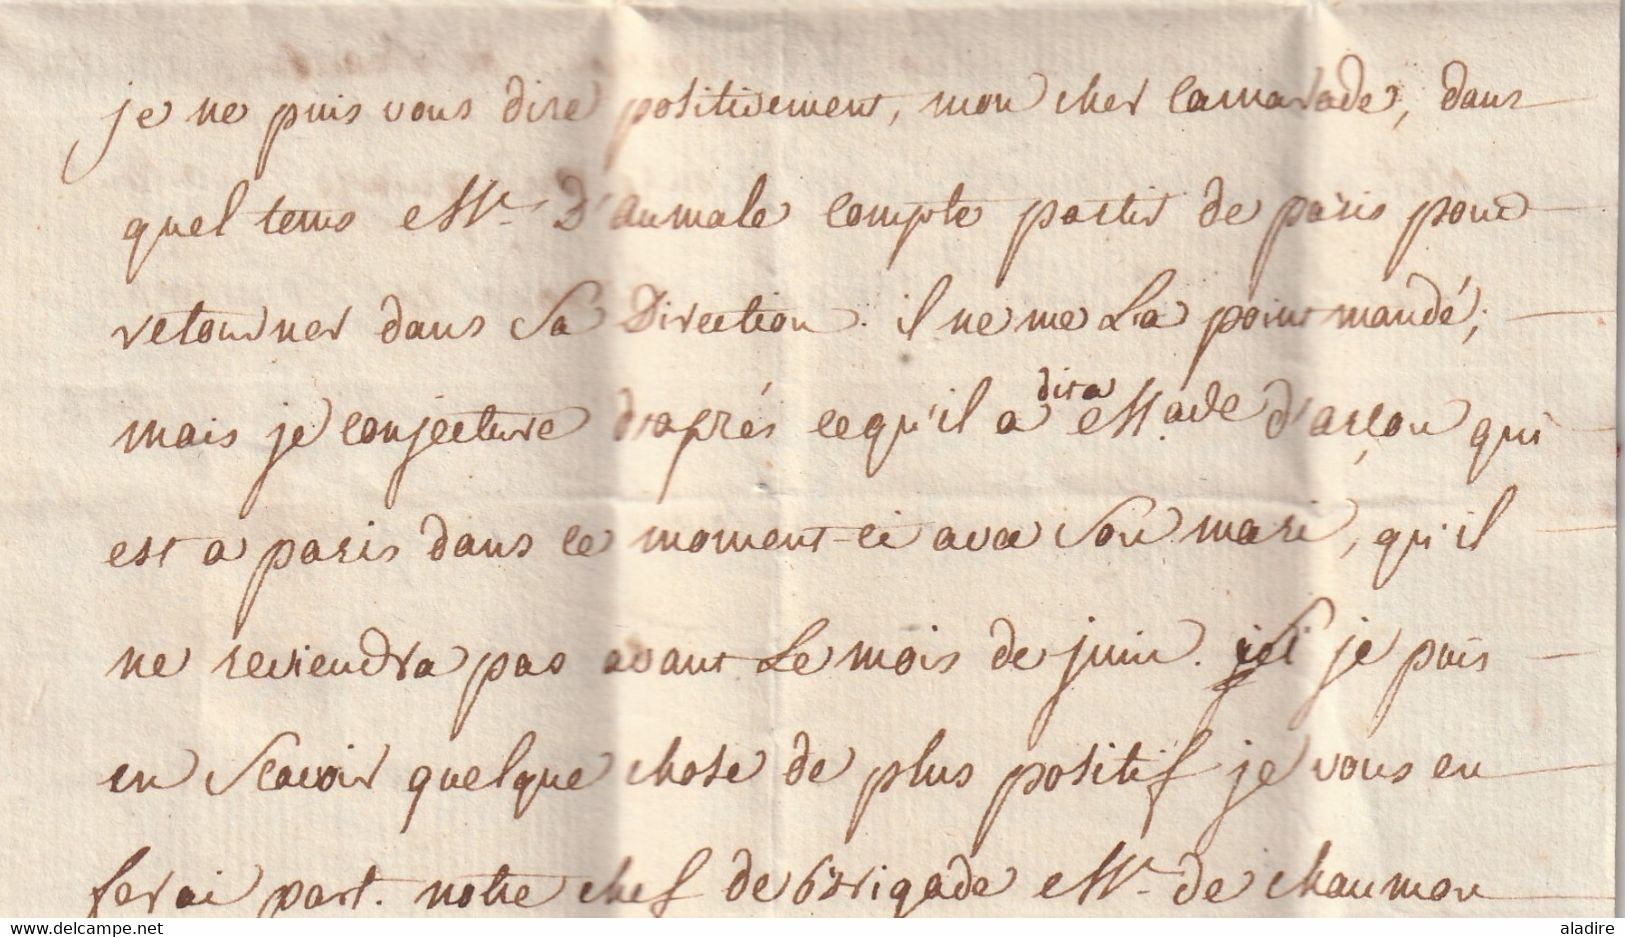 je ne puis vous dire positivement, mon cher camarade, dans
quel tems Mr. D'aumale compte partir de paris pour
retourner dans sa Direction. il ne me La point mandé;
mais je conjecture d'aprés ce qu'il a dit a Made d'arçon qui
est a paris dans ce moment-ci avec son mari, qu'il
ne reviendra pas avant Le mois de juin. si je puis
en scavoir quelque chose de plus positif je vous en
ferai part. notre chef de brigade Mr. de chaumon
delcampe.net
aladire